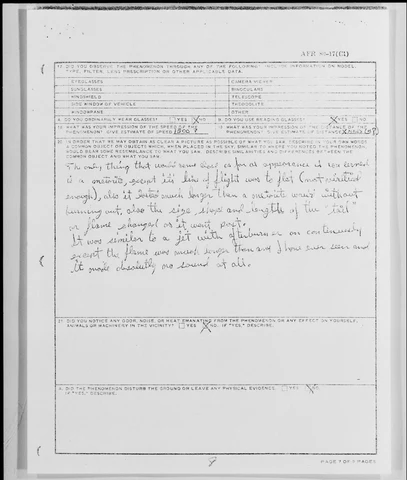 AFR 80-17(C1)
17. DID YOU OBSERVE THE PHENOMENON THROUGH ANY OF THE FOLLOWING? INCLUDE INFORMATION ON MODEL, TYPE, FILTER, LENS PRESCRIPTION OR OTHER APPLICABLE DATA.
EYEGLASSES CAMERA VIEWER
SUNGLASSES BINOCULARS
WINDSHIELD TELESCOPE
SIDE WINDOW OF VEHICLE THEODOLITE
WINDOWPANE OTHER
DO YOU ORDINARILY WEAR GLASSES? YES X NO DO YOU USE READING GLASSES? X YES NO
WHAT WAS YOUR IMPRESSION OF THE SPEED OF THE PHENOMENON? GIVE ESTIMATE OF SPEED 1500 ? WHAT WAS YOUR IMPRESSION OF THE DISTANCE OF THE PHENOMENON? GIVE ESTIMATE OF DISTANCE
IN ORDER THAT WE MAY OBTAIN AS CLEAR A PICTURE AS POSSIBLE OF WHAT YOU SAW, DESCRIBE IN YOUR OWN WORDS
A COMMON OBJECT OR OBJECTS WHICH, WHEN PLACED IN THE SKY, SIMILAR TO WHERE YOU NOTED THE PHENOMENON,
WOULD BEAR SOME RESEMBLANCE TO WHAT YOU SAW. DESCRIBE SIMILARITIES AND DIFFERENCES BETWEEN THE
COMMON OBJECT AND WHAT YOU SAW.
The only thing that would come close as far as appearance is concerned
is a meteorite, except it's line of flight was to flat (not vertical
enough), also it lasted much longer than a meteorite would without
burning out, also the size, shape and length of the "tail"
or flame changed as it went past.
It was similar to a jet with afterburner on continuously
except the flame was much longer than any I have ever seen and
it made absolutely no sound at all.
DID YOU NOTICE ANY ODOR, NOISE, OR HEAT EMANATING FROM THE PHENOMENON OR ANY EFFECT ON YOURSELF,
ANIMALS OR MACHINERY IN THE VICINITY? YES X NO. IF "YES," DESCRIBE.
DID THE PHENOMENON DISTURB THE GROUND OR LEAVE ANY PHYSICAL EVIDENCE? YES X NO
IF "YES," DESCRIBE.
PAGE 7 OF 9 PAGES